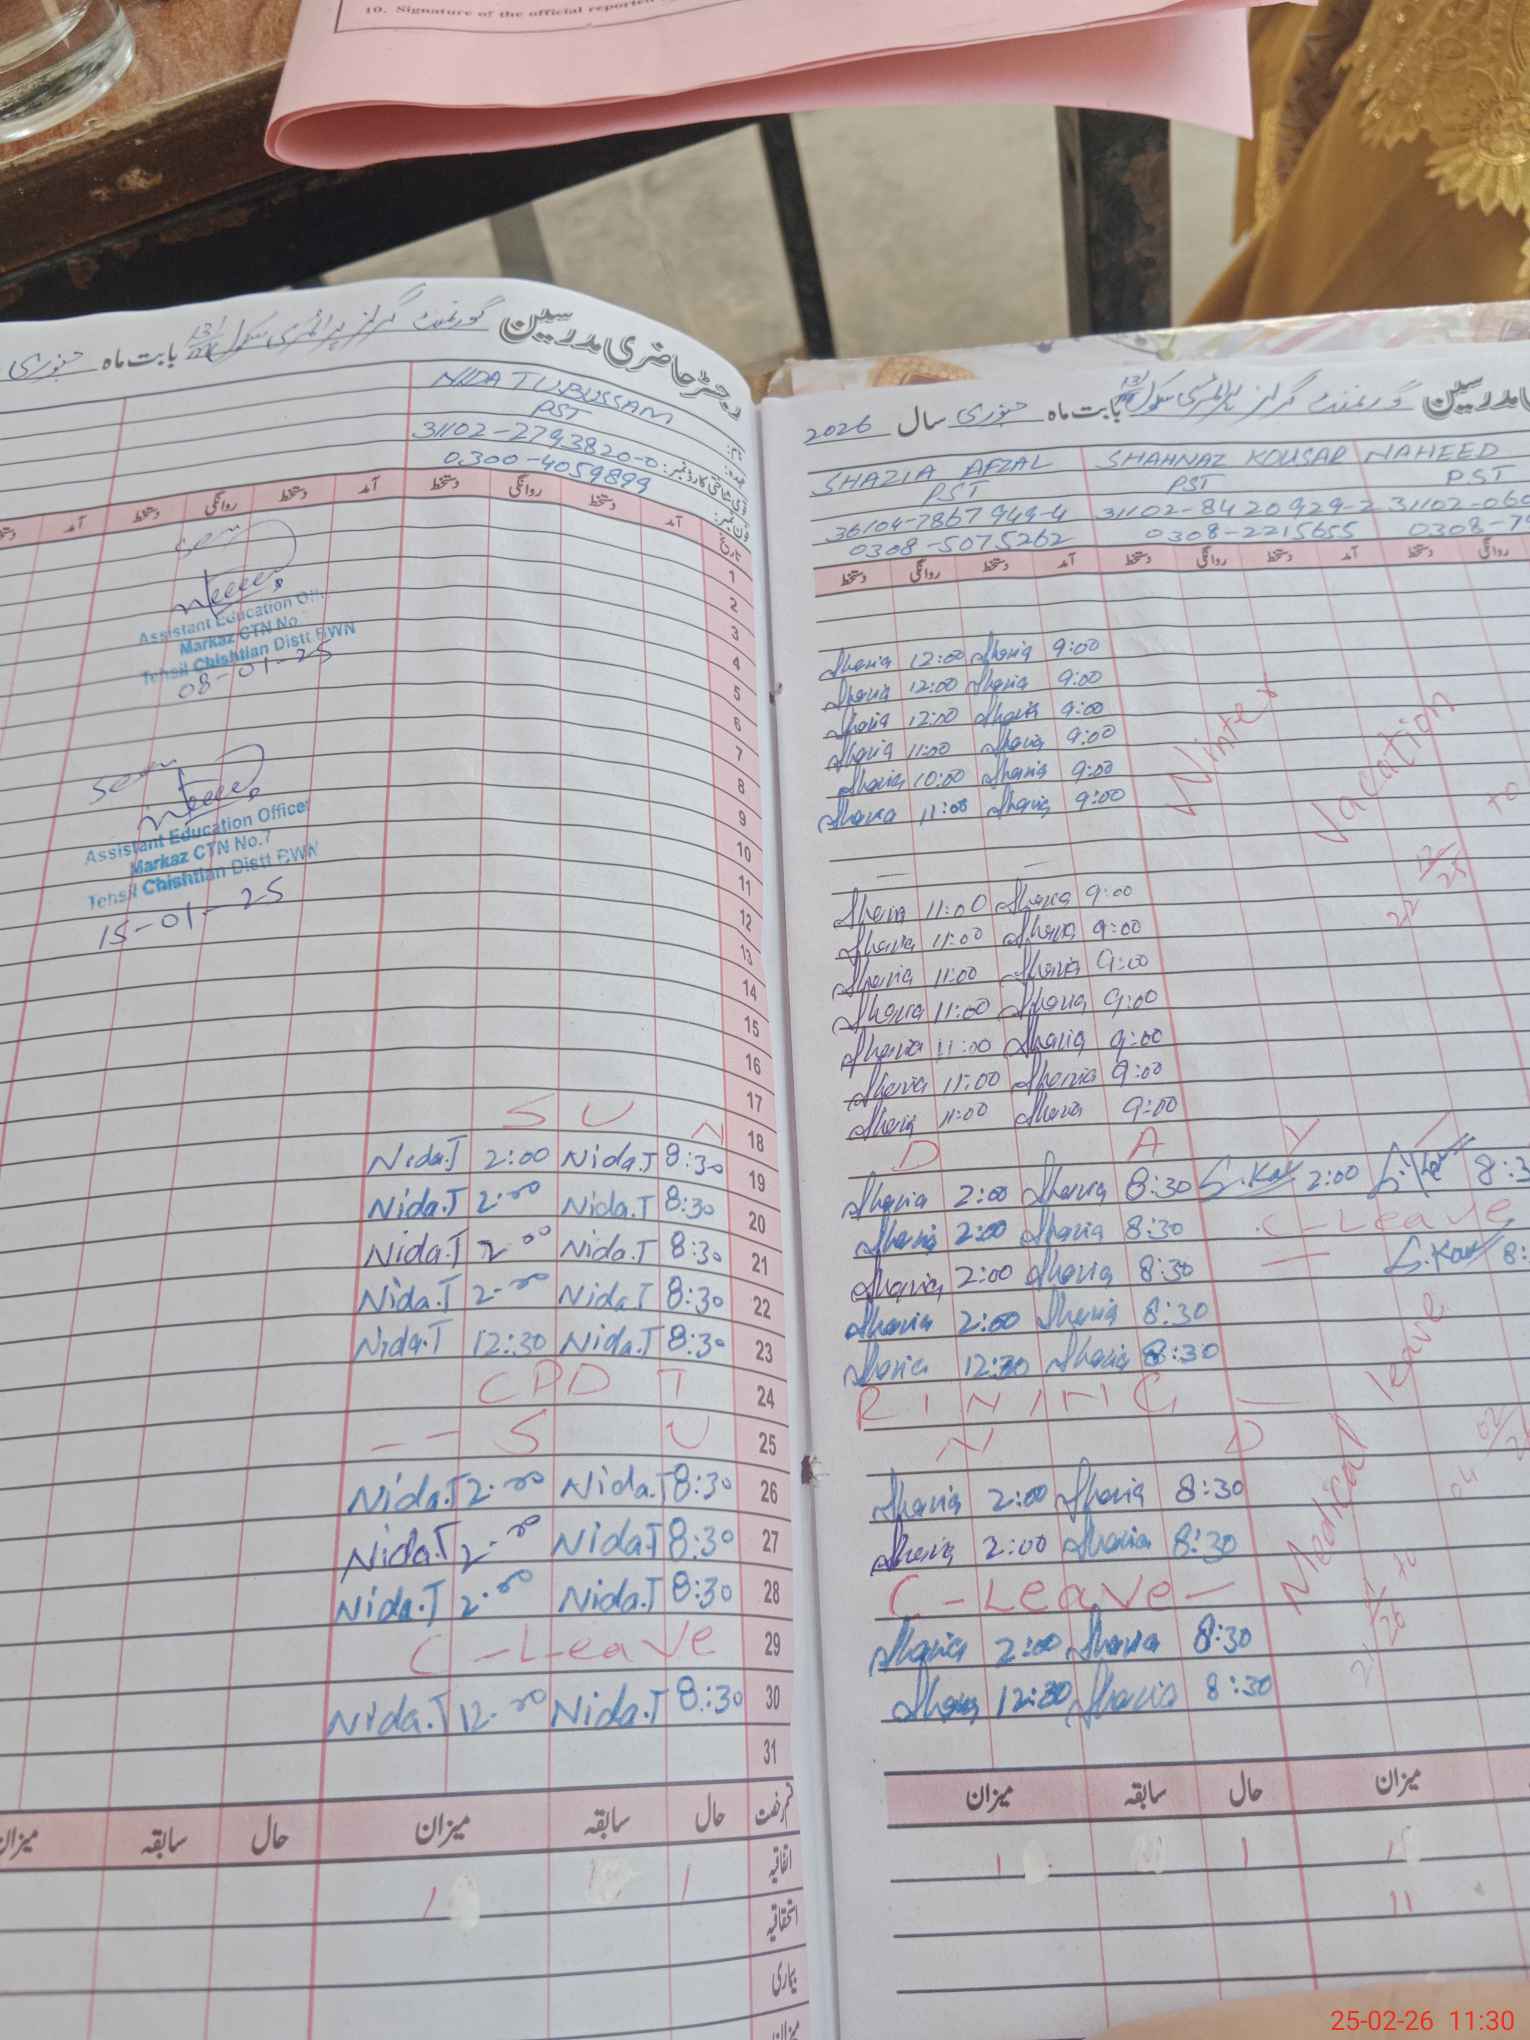 10. Signature of the official reported
رجسٹر حاضری مدرسین گورنمنٹ گرلز پرائمری سکول 131 بابت ماہ جنوری
نام: NIDA TUBUSSAM
عہدہ: PST
قومی شناختی کارڈ نمبر: 31102-2793820-0
فون نمبر: 0300-4059899
تاریخ آمد دستخط روانگی دستخط آمد دستخط روانگی دستخط آمد
1
2
3
4
5
6
7
8
9
10
11
12
13
14
15
16
17
18 S U N
19 8:30 Nida.T 2:00 Nida.T
20 8:30 Nida.T 2:00 Nida.T
21 8:30 Nida.T 2:00 Nida.T
22 8:30 Nida.T 2:00 Nida.T
23 8:30 Nida.T 12:30 Nida.T
24 CPD T
25 -- S U
26 8:30 Nida.T 2:00 Nida.T
27 8:30 Nida.T 2:00 Nida.T
28 8:30 Nida.T 2:00 Nida.T
29 C-Leave
30 8:30 Nida.T 12:00 Nida.T
31
قسم رخصت حال سابقہ میزان حال سابقہ میزان
اتفاقیہ 1 1
استحقاقیہ
بیماری
میزان
Seen
Assistant Education Off
Markaz CTN No
Tehsil Chishtian Distt BWN
08-01-25
Seen
Assistant Education Officer
Markaz CTN No.7
Tehsil Chishtian Distt BWN
15-01-25
مدرسین گورنمنٹ گرلز پرائمری سکول 131 بابت ماہ جنوری سال 2026
SHAZIA AFZAL SHAHNAZ KOUSAR NAHEED
PST PST PST
36104-7867949-4 31102-8420929-2 31102-060
0308-5075262 0308-2215655 0308-79
دستخط روانگی دستخط آمد دستخط روانگی دستخط آمد دستخط روانگی
Shazia 12:00 Shazia 9:00
Shazia 12:00 Shazia 9:00
Shazia 12:00 Shazia 9:00
Shazia 11:00 Shazia 9:00
Shazia 10:00 Shazia 9:00
Shazia 11:00 Shazia 9:00
Winter Vacation
22 12/25 to
Shazia 11:00 Shazia 9:00
Shazia 11:00 Shazia 9:00
Shazia 11:00 Shazia 9:00
Shazia 11:00 Shazia 9:00
Shazia 11:00 Shazia 9:00
Shazia 11:00 Shazia 9:00
Shazia 11:00 Shazia 9:00
D A Y
Shazia 2:00 Shazia 8:30 S.Kau 2:00 S.Kau 8:3
Shazia 2:00 Shazia 8:30 C-Leave
Shazia 2:00 Shazia 8:30 — S.Kau 8:
Shazia 2:00 Shazia 8:30
Shazia 12:30 Shazia 8:30
R I N I N G —
N D
Shazia 2:00 Shazia 8:30
Shazia 2:00 Shazia 8:30
C-Leave-
Shazia 2:00 Shazia 8:30
Shazia 12:30 Shazia 8:30
Medical leave
to 04 02/2
میزان سابقہ حال میزان
1 1 1
11
25-02-26 11:30